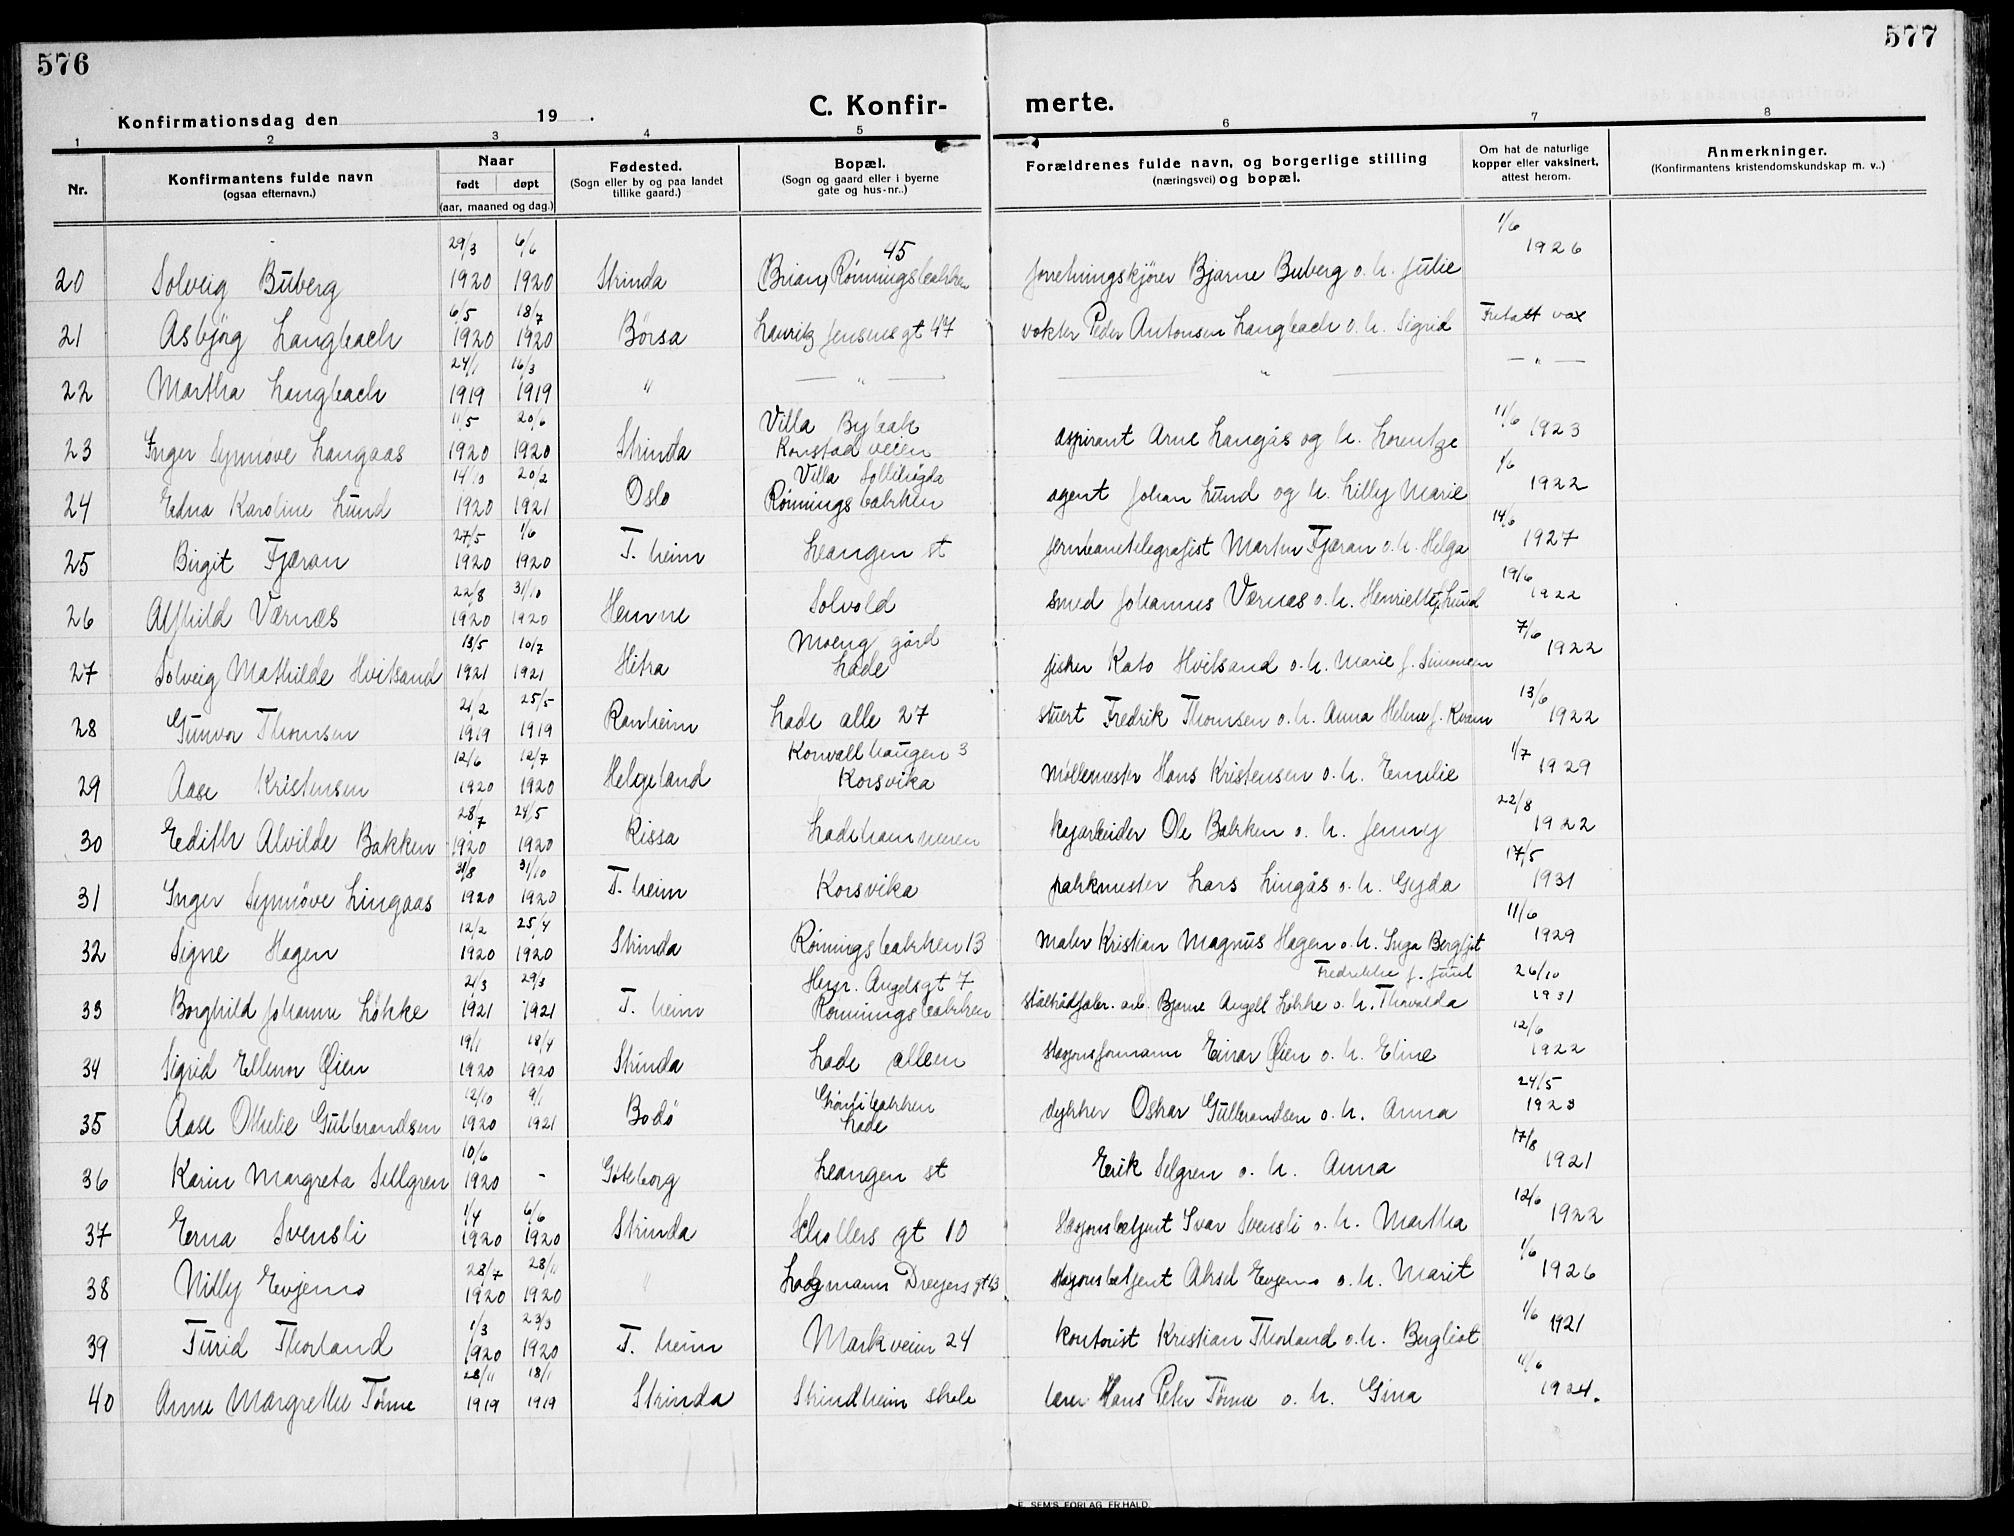 576
577
Konfirmationsdag den 19 .
C. Konfir-
merte.
1 2 3 4 5 6 7 8
Nr.
Konfirmantens fulde navn
(ogsaa efternavn.)
Naar
født døpt
(aar, maaned og dag.)
Fødested.
(Sogn eller by og paa landet
tillike gaard.)
Bopæl.
(Sogn og gaard eller i byerne
gate og hus-nr..)
Forældrenes fulde navn, og borgerlige stilling
(næringsvei) og bopæl.
Om hat de naturlige
kopper eller vaksinert,
attest herom.
Anmerkninger.
(Konfirmantens kristendomskundskap m. v..)
29/3 6/6 45 1/6 1926
20 Solveig Buberg 1920 1920 Strinda (Brian) Rønningsbakken forretningskjører Bjarne Buberg o.h. Julie
6/5 18/7
21 Asbjørg Langbach 1920 1920 Børsa Lauritz Jensens gt 47 vokter Peder Antonsen Langbach o.h. Sigrid Fretatt vax
24/1 16/3
22 Martha Langbach 1919 1919 " — " — — " — — " —
11/5 20/6 Villa Bybak 11/6 1923
23 Inger Synnøve Langaas 1920 1920 Strinda Konstad veien aspirant Arne Langås og h. Lorentze
14/10 20/2 Villa Sollihøgda 1/6 1922
24 Edna Karoline Lund 1920 1921 Oslo Rønningsbakken agent Johan Lund og h. Lilly Marie
27/5 1/6 14/6 1927
25 Birgit Fjæran 1920 1920 T.heim Leangen st jernbanetelegrafist Martin Fjæran o.h. Helga
22/8 31/10 19/6 1922
26 Alfhild Værnæs 1920 1920 Hemne Solvold smed Johannes Værnæs o.h. Henriette f. Lund
13/5 10/7 Moeng gård 7/6 1922
27 Solveig Mathilde Hvitsand 1921 1921 Hitra Lade fisker Kato Hvitsand o.h. Marie f. Simonsen
21/2 25/5 13/6
28 Gunvor Thomsen 1919 1919 Ranheim Lade alle 27 stuert Fredrik Thomsen o.h. Anna Helene f. Kvam 1922
12/6 12/7 Konvallhaugen 3 1/7 1929
29 Aase Kristensen 1920 1920 Helgeland Korsvika møllemester Hans Kristensen o.h. Emilie
28/7 24/5 22/8
30 Edith Alvilde Bakken 1920 1920 Rissa Ladehammeren kajarbeider Ole Bakken o.h. Jenny 1922
31/8 31/10 17/5
31 Inger Synnøve Lingaas 1920 1920 T.heim Korsvika pakkmester Lars Lingås o.h. Gyda 1931
12/2 25/4 11/6
32 Signe Hagen 1920 1920 Strinda Rønningsbakken 13 maler Kristian Magnus Hagen o.h. Inga Bergljot 1929
21/3 29/3 Herr. Angels gt 7 Fredrikke f. Juul 26/10
33 Borghild Johanne Løkke 1921 1921 T.heim Rønningsbakken ståltrådfabr. arb. Bjarne Angell Løkke o.h. Thovalda 1931
19/1 18/4 12/6
34 Sigrid Ellenor Øien 1920 1920 Strinda Lade alleen stasjonsformann Einar Øien o.h. Eline 1922
12/10 9/1 24/5
35 Aase Othelie Gulbrandsen 1920 1921 Bodø Lade dykker Oskar Gulbrandsen o.h. Anna 1923
10/6 17/8
36 Karin Margreta Sellgren 1920 - Gøteborg Leangen st Erik Selgren o.h. Anna 1921
1/4 6/6 12/6
37 Erna Svensli 1920 1920 Strinda Schøllers gt 10 stasjonsbetjent Ivar Svensli o.h. Martha 1922
28/7 28/11 1/6
38 Nilly Evjemo 1920 1920 " Lagmann Dreyers gt 13 stasjonsbetjent Aksel Evjemo o.h. Marit 1926
1/3 23/3 1/6
39 Turid Thorland 1920 1920 T.heim Markveien 24 kontorist Kristian Thorland o.h. Bergliot 1921
28/11 18/1 11/6
40 Anne Margrethe Tømme 1919 1919 Strinda Strindheim skole lærer Hans Peter Tømme o.h. Gina 1924.
E. SEM'S FORLAG, FR.HALD.